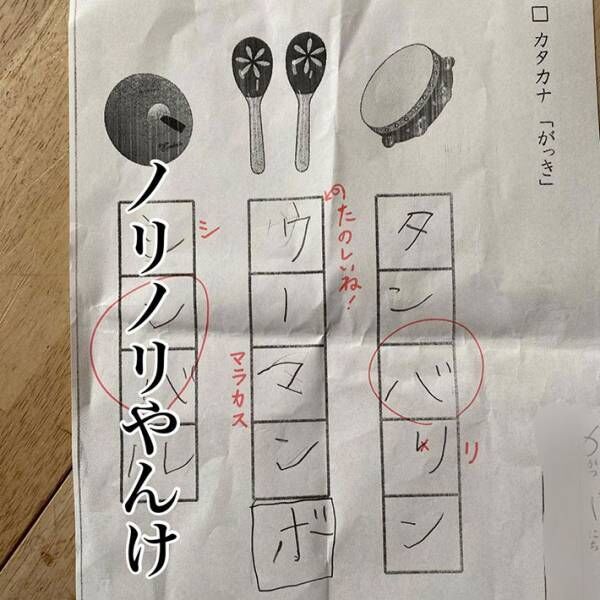 □ カタカナ 「がっき」
タンバリン
リ
のたのしいね!
ウーマンボ
マラカス
シ
ンバル
ノリノリやんけ
にち